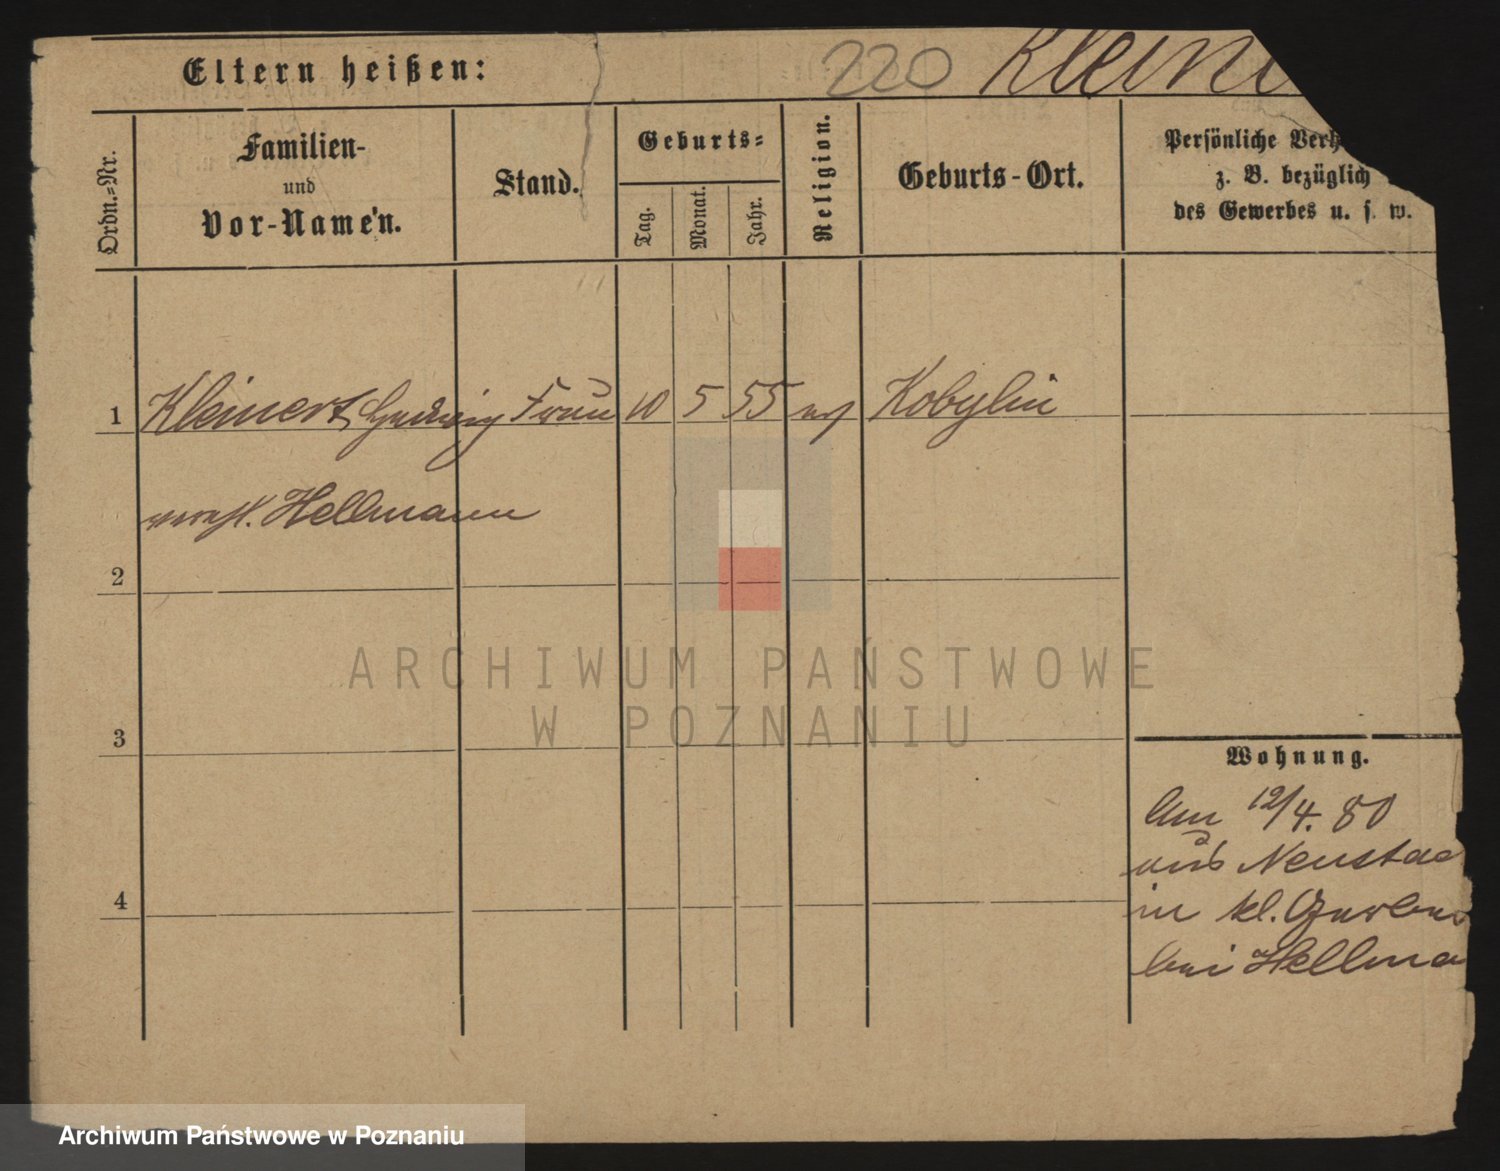 Eltern heißen: 220 Klein
Ordn.=Nr.
Familien-
und
Vor-Namen.
Stand.
Geburts=
Tag.
Monat.
Jahr.
Religion.
Geburts-Ort.
Persönliche Verh
z. B. bezüglich
des Gewerbes u. s. w.
1 Kleinert, Hedwig Frau 10 5 55 ev Kobylin
verehl. Hellmann
2
3
4
Wohnung.
Am 12/4. 80
aus Neustad
in kl.
bei Hellma
ARCHIWUM PAŃSTWOWE
W POZNANIU
Archiwum Państwowe w Poznaniu